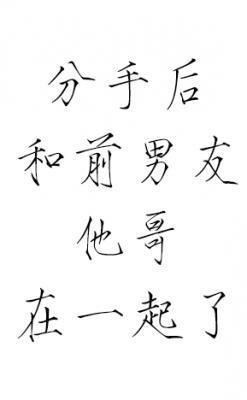 分手后
和前男友
他哥
在一起了